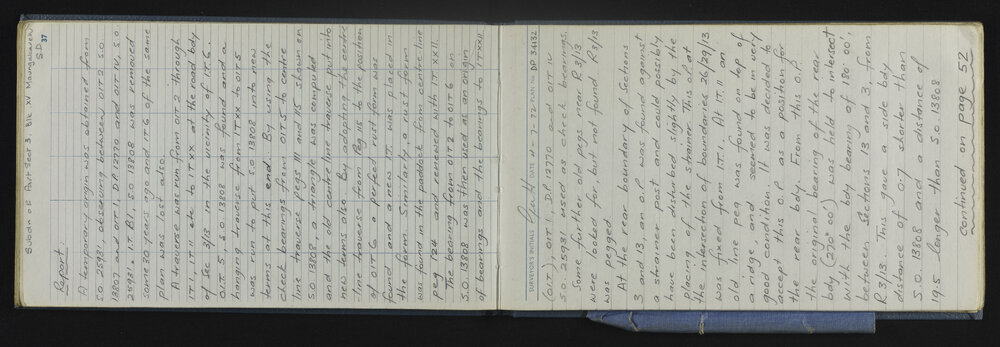 Subdn of Part Sect 3, Blk XV Maungaru S.D.
37
Report
A temporary origin was obtained from
S.O. 25931, observing between OIT 2 S.O.
13807 and OIT 1, D.P. 12770 and OIT IV, S.O.
25931. IT B1, S.O. 13808 was removed
some 30 years ago and IT 6 of the same
plan was lost also.
A traverse was run from OIT 2 through
IT 1, IT 11 etc to IT XX at the road body
of Sec 3/13 in the vicinity of IT 6.
OIT 5, S.O. 13808 was found and a
hanging traverse from IT XX to OIT 5
was run to put S.O. 13808 into new
terms at this end. By using the
check bearings from OIT 5 to centre
line traverse pegs 111 and 115 shown on
S.O. 13808 a triangle was computed
and the old centreline traverse put into
new terms also. By adopting the centre
-line traverse from Peg 115 to the position
of OIT 6 a perfect rust form was
found and a new IT was placed in
the form. Similarly a rust form
was found in the paddock from centre line
peg 124 and renewed with IT XXII.
The bearing from OIT 2 to OIT 6 on
S.O. 13808 was then used as an origin
of bearings and the bearings to IT XXII
SURVEYOR'S INITIALS
DATE 5-7-72
PLAN No. DP 34132
(OIT 2), OIT 1, D.P. 12770 and OIT IV
S.O. 25931 used as check bearings.
Some further old pegs near R3/13
were looked for, but not found R3/13
was pegged
At the rear boundary of Sections
3 and 13 an O.P. was found against
a strainer post and could possibly
have been disturbed slightly by the
placing of the strainer. This O.P. at
the intersection of boundaries 26/29/13
was fixed from IT 1. At IT 11 an
old line peg was found on top of
a ridge, and seemed to be in very
good condition. It was decided to
accept this O.P. as a position for
the rear body. From this O.P.
the original bearing of the rear
body (270° 00') was held to intersect
with the body bearing of 180° 00',
between Sections 13 and 3, from
R3/13. This gave a side body
distance of 0.7 shorter than
S.O. 13808 and a distance of
19.5 longer than S.O. 13808
continued on page 52